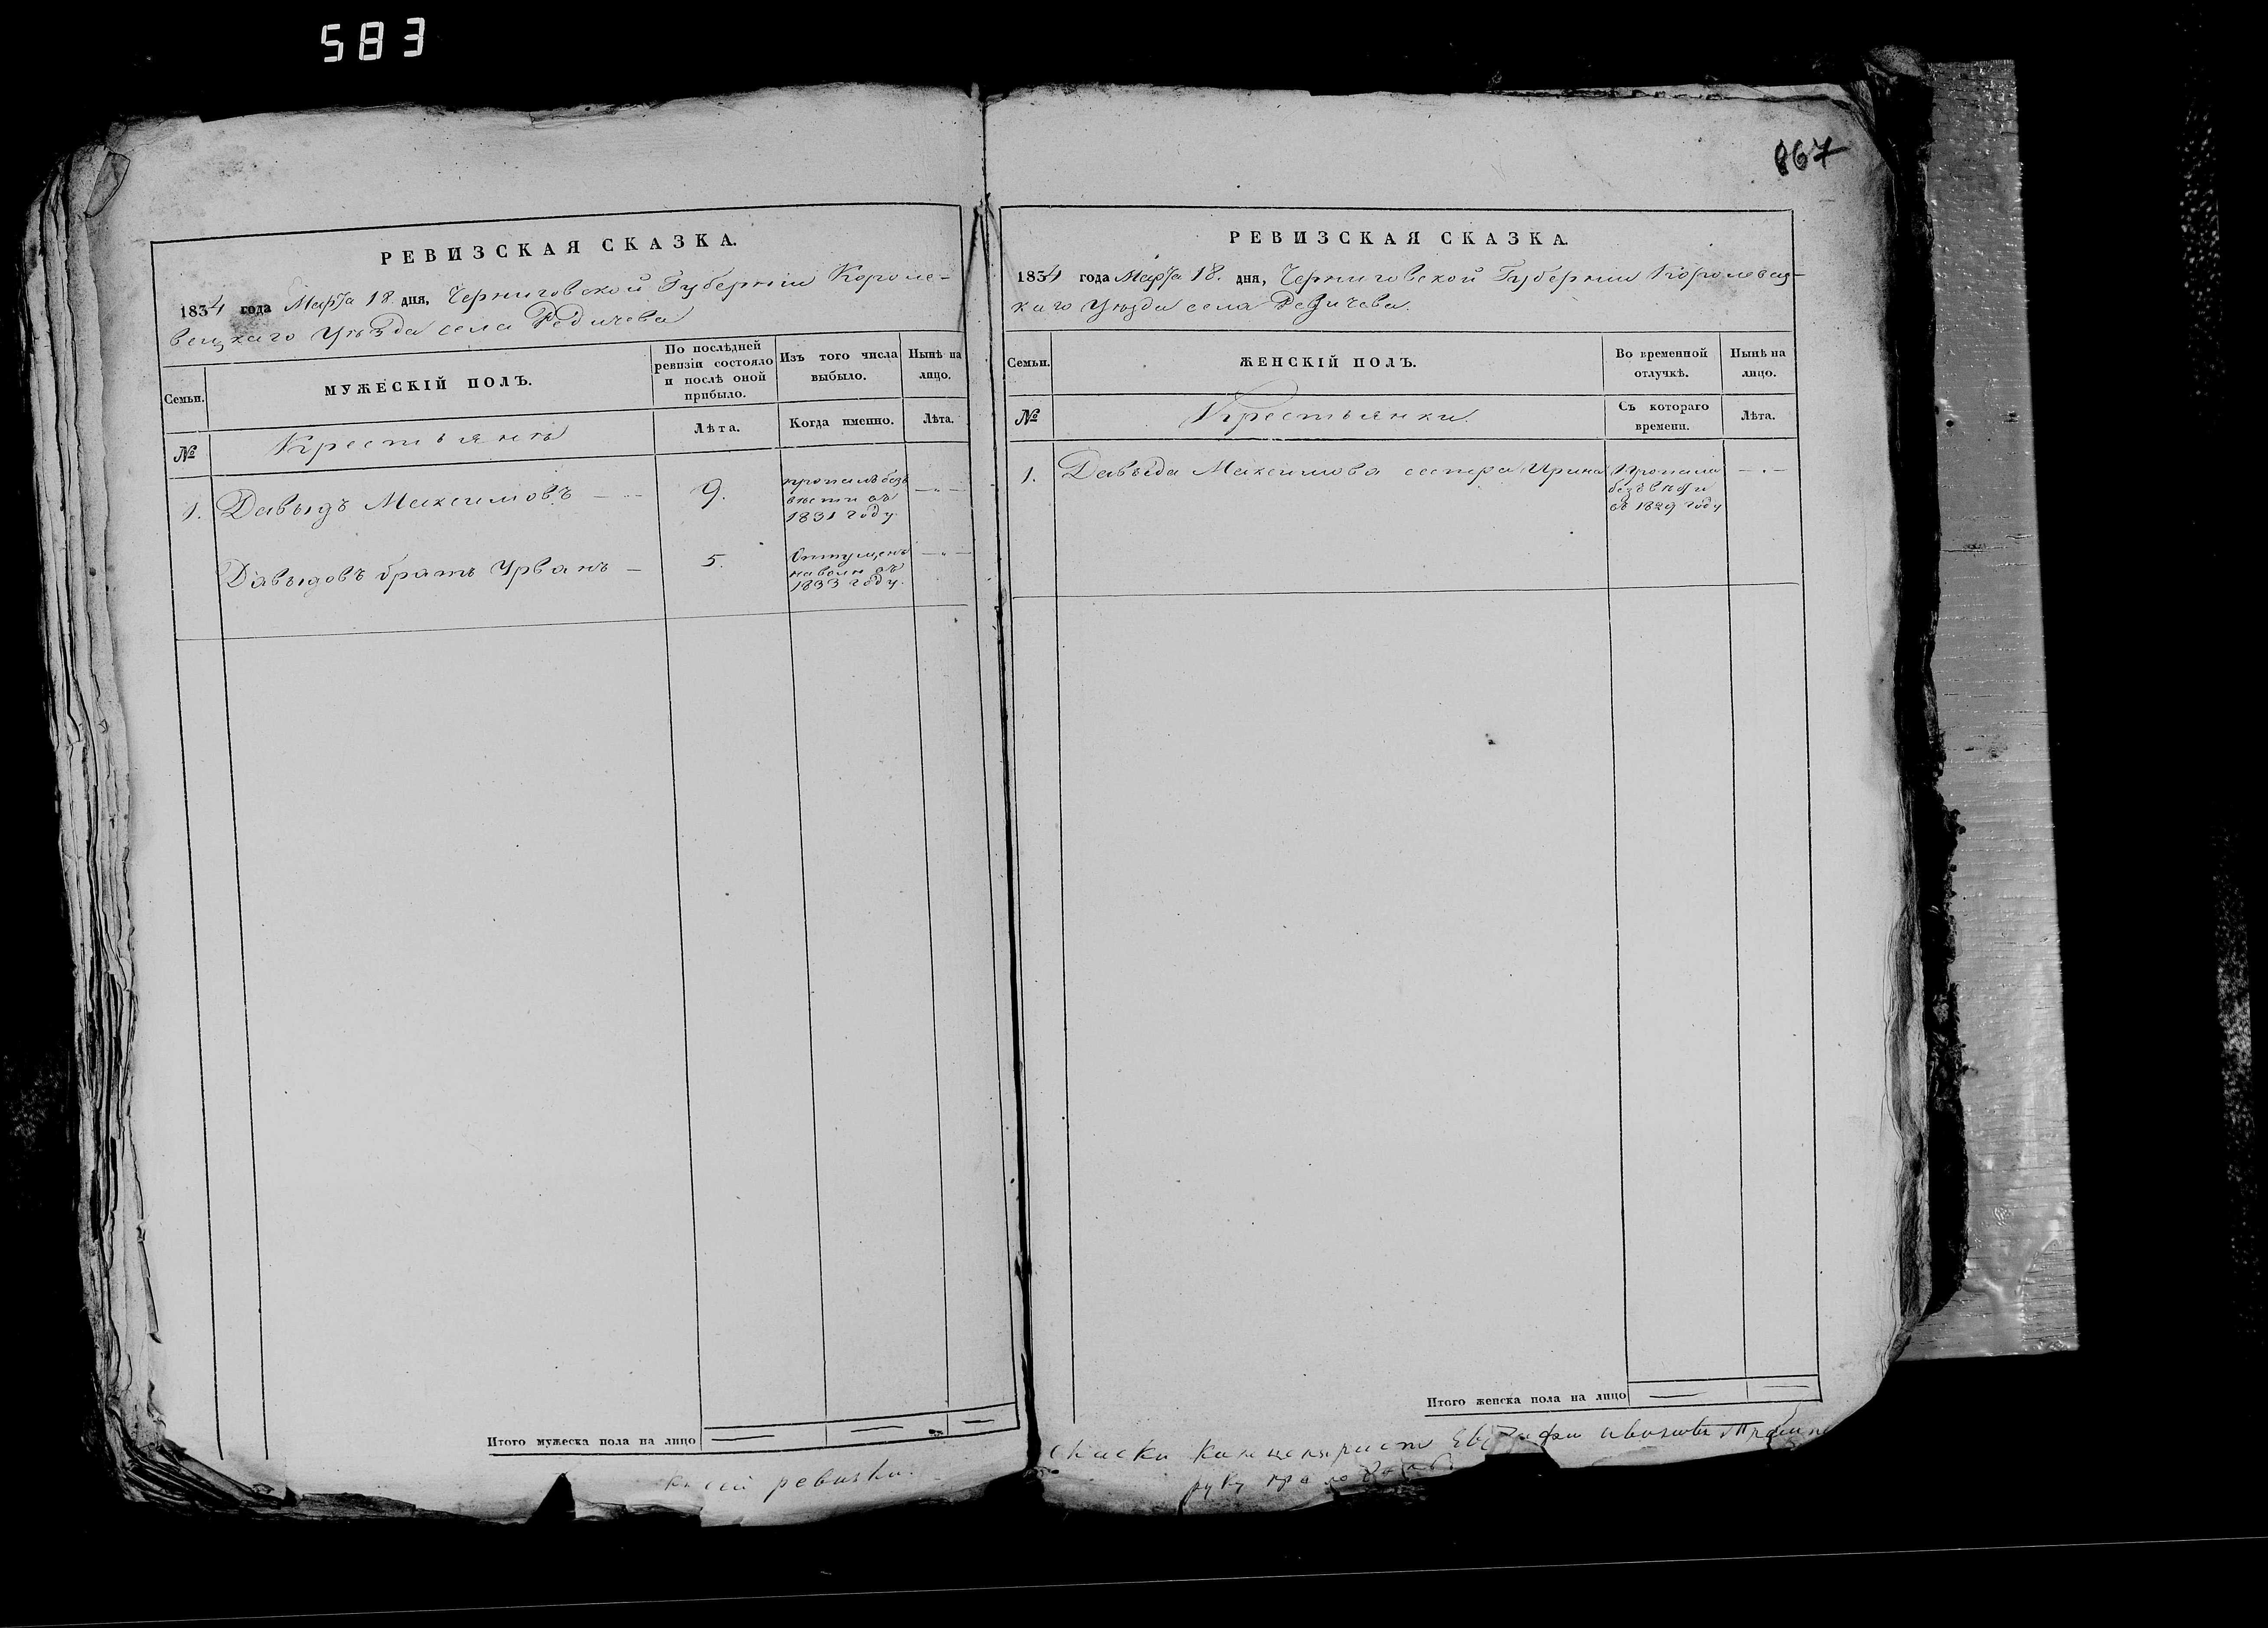 583
867
РЕВИЗСКАЯ СКАЗКА.
1834 года Марта 18 дня, Черниговской Губерніи Короле-
вецкаго Уѣзда села Редичева
Семьи.
МУЖЕСКІЙ ПОЛЪ.
По послѣдней
ревизіи состояло
и послѣ оной
прибыло.
Изъ того числа
выбыло.
Нынѣ на
лицо.
№
Крестьянъ
Лѣта.
Когда именно.
Лѣта.
1. Давыдъ Максимовъ — 9.
пропалъ безъ
вѣсти въ
1831 году
Давыдовъ братъ Урванъ — 5.
Отпущенъ
на волю въ
1833 году.
Итого мужеска пола на лицо
ревизки.
РЕВИЗСКАЯ СКАЗКА.
1834 года Марта 18. дня, Черниговской Губерніи Королевец-
каго Уѣзда села Редичева.
Семьи.
ЖЕНСКІЙ ПОЛЪ.
Во временной
отлучкѣ.
Нынѣ на
лицо.
№
Крестьянки
Съ котораго
времени.
Лѣта.
1. Давыда Максимова сестра Ирина
Пропала
безъ вѣсти
въ 1829 году
Итого женска пола на лицо
скаски канцеляристъ
руку приложилъ